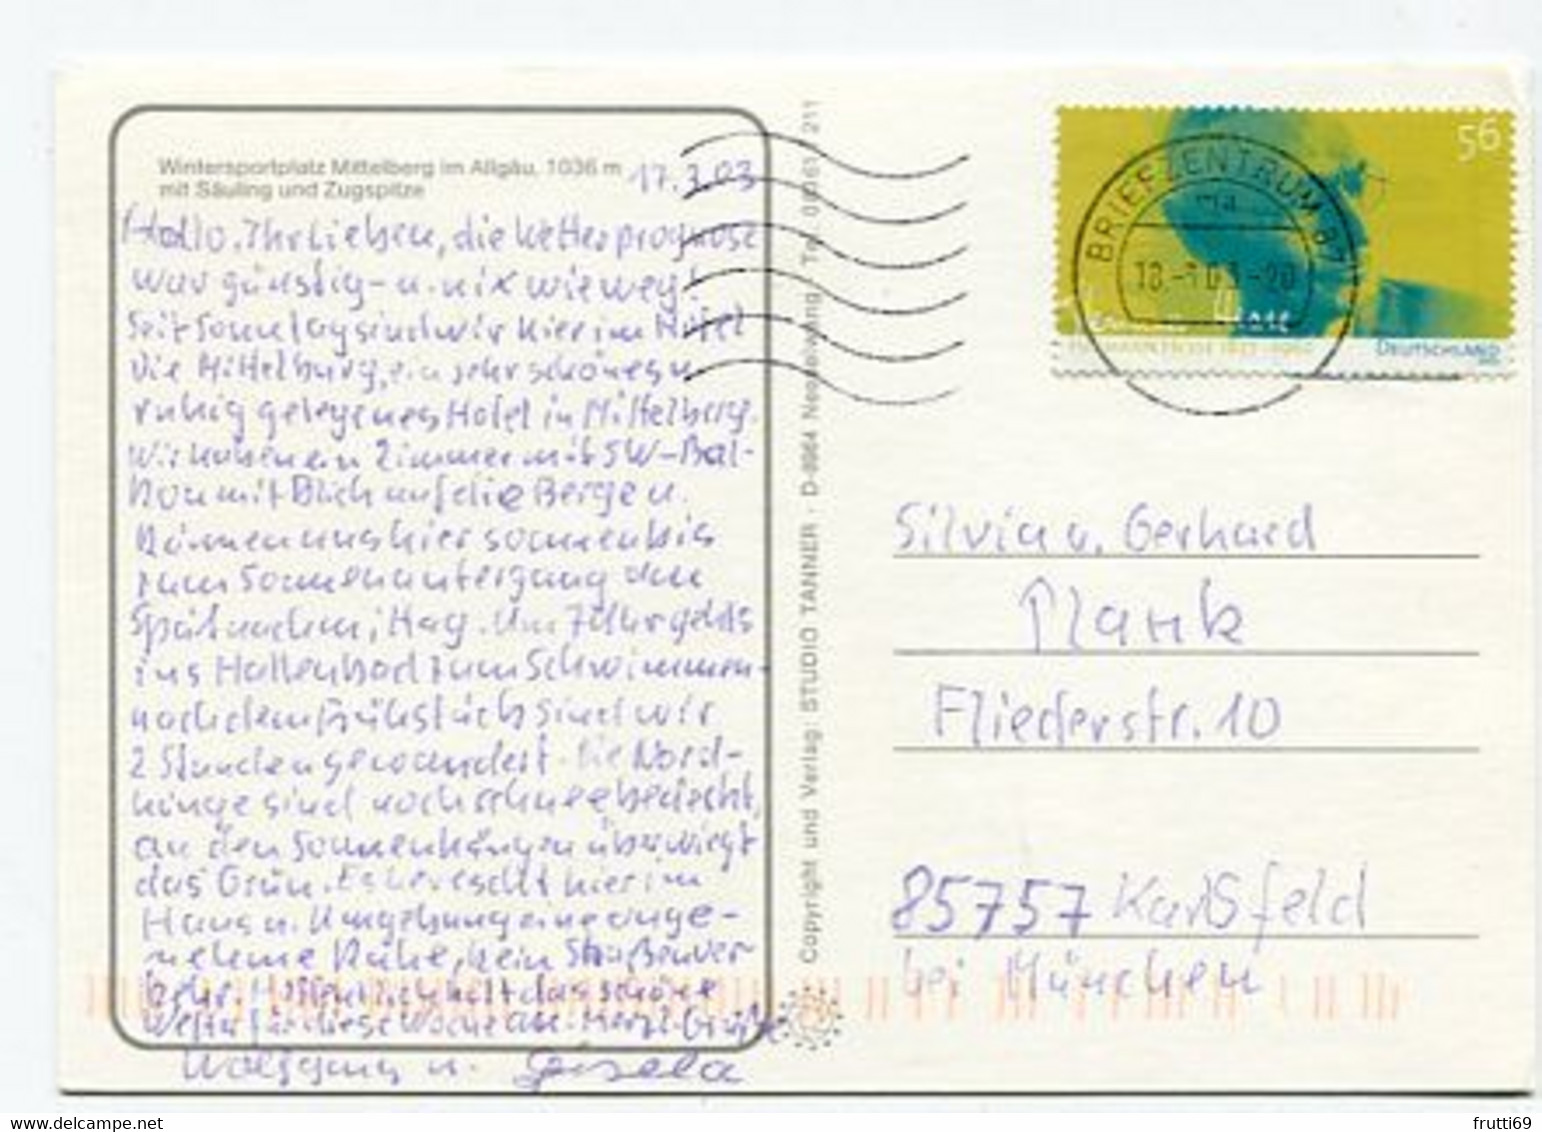 Wintersportplatz Mittelberg im Allgäu, 1036 m
mit Säuling und Zugspitze
17.3.03
Hallo, Ihr Lieben, die Wetterprognose
war günstig - u. nix wie weg!
Seit Sonntag sind wir hier im Hotel
Die Mittelburg, ein sehr schönes u.
ruhig gelegenes Hotel in Mittelberg.
Wir haben ein Zimmer mit SW-Bal-
kon mit Blick auf die Berge u.
können uns hier sonnen bis
zum Sonnenuntergang
Spätnachmittag. Um 7 Uhr geht's
ins Hallenbad zum Schwimmen -
nach dem Frühstück sind wir
2 Stunden gewandert. Die Nord-
hänge sind noch schneebedeckt,
an den Sonnenhängen überwiegt
das Grün. Es herrscht hier im
Haus u. Umgebung eine ange-
nehme Ruhe, kein Straßenver
kehr. Hoffentlich hält das schöne
Wetter für diese Woche an. Herzl. Grüße
Wolfgang u. Gisela
Copyright und Verlag: STUDIO TANNER · D-8964 Nesselwang
211
56
BRIEFZENTRUM 87
DEUTSCHLAND
Silvia u. Gerhard
Plank
Fliederstr. 10
85757 Karlsfeld
bei München
www.delcampe.net
frutti69